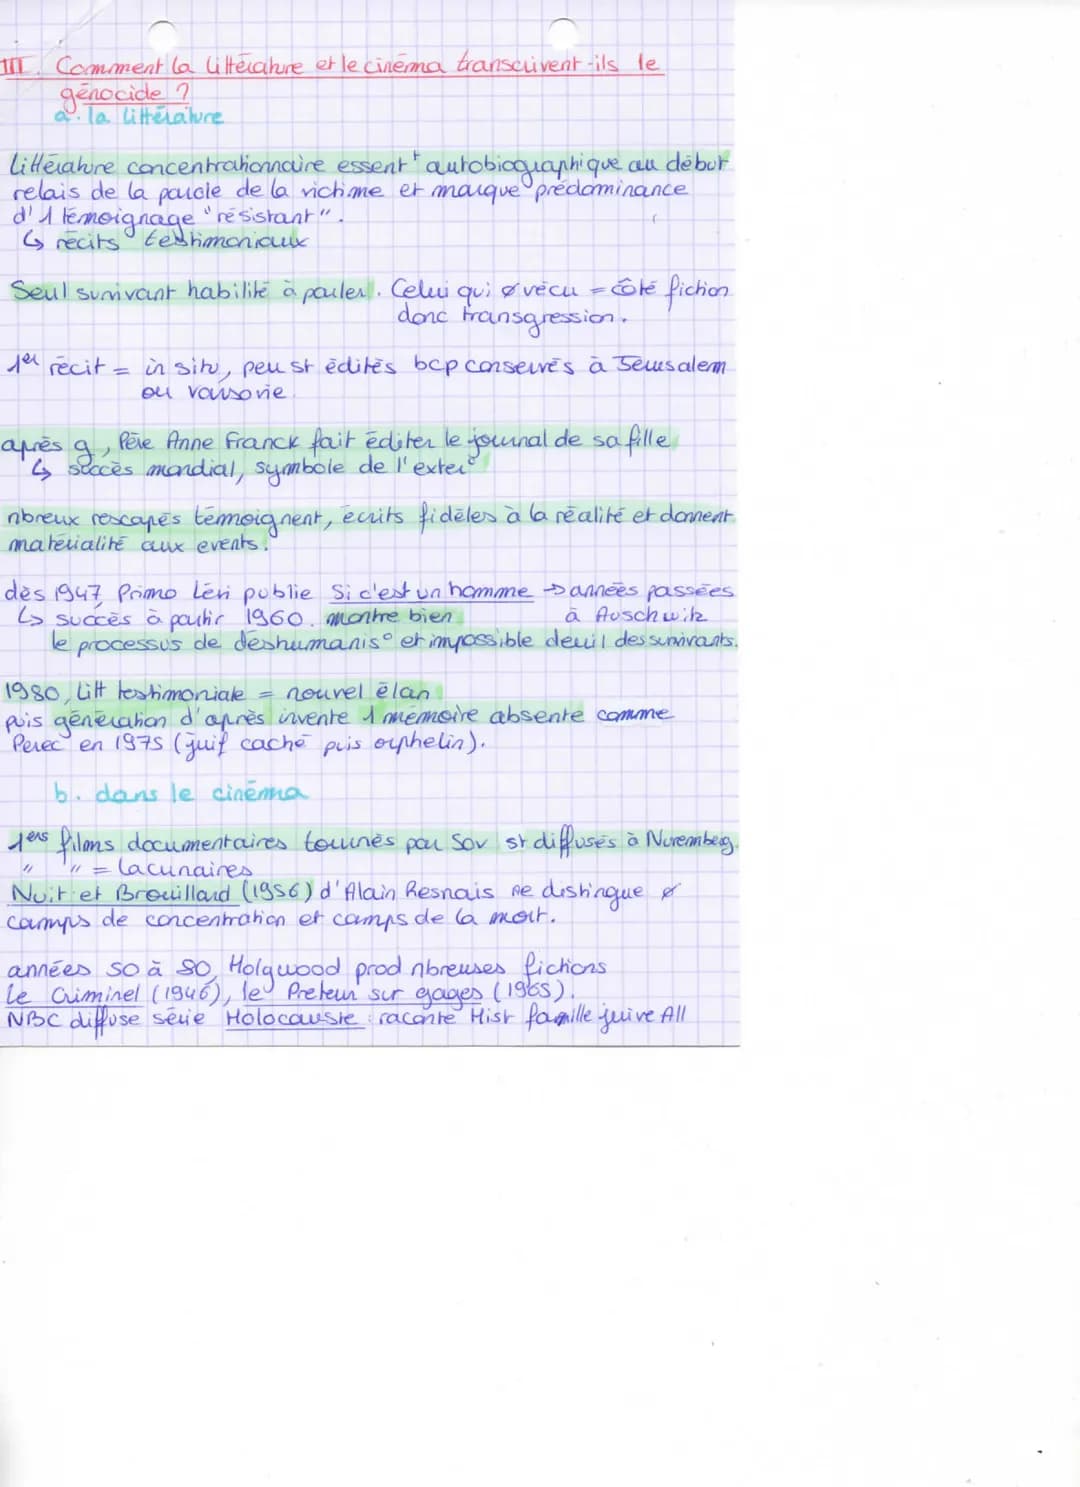 III. Comment la littérature et le cinéma transcrivent-ils le
génocide ?
a. la littérature
littérature concentrationnaire essent^t autobiographique au début
relais de la parole de la victime et marque prédominance
d'1 témoignage "résistant".
↳ récits testimoniaux
Seul survivant habilité à parler. Celui qui ø vécu = côté fiction
donc transgression.
1er récit = in situ, peu st édités bcp conservés à Jerusalem
ou varsovie.
après g, Père Anne Franck fait éditer le journal de sa fille
↳ succès mondial, symbole de l'exter°
nbreux rescapés témoignent, écrits fidèles à la réalité et donnent
matérialité aux events.
dès 1947, Primo Lévi publie Si c'est un homme → années passées
↳ succès à partir 1960. montre bien à Auschwitz
le processus de déshumanis° et impossible deuil des survivants.
1980, litt testimoniale = nouvel élan
puis génération d'après invente 1 mémoire absente comme
Perec en 1975 (juif caché puis orphelin).
b. dans le cinéma
1ers films documentaires tournés par Sov st diffusés à Nuremberg.
" " = lacunaires
Nuit et Brouillard (1956) d'Alain Resnais ne distingue ø
camps de concentration et camps de la mort.
années 50 à 80, Holywood prod nbreuses fictions
Le Criminel (1946), le Preteur sur gages (1965).
NBC diffuse série Holocauste : raconte Hist famille juive All